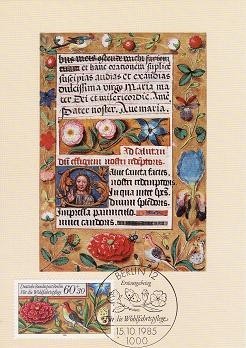 suscipias audias et exaudias
dulcissima virgo Maria ma
ter Dei et misericordie Ame
Pater noster. Ave maria.
Ad salutari
Salve sancta facies,
nostri redemptoris
In qua nitet spe
divini splendoris
Impressa panniculo
nivei candoris
Deutsche Bundespost Berlin
Für die Wohlfahrtspflege
60+30
BERLIN 12
Erstausgabetag
Für die Wohlfahrtspflege
15.10.1985
1000